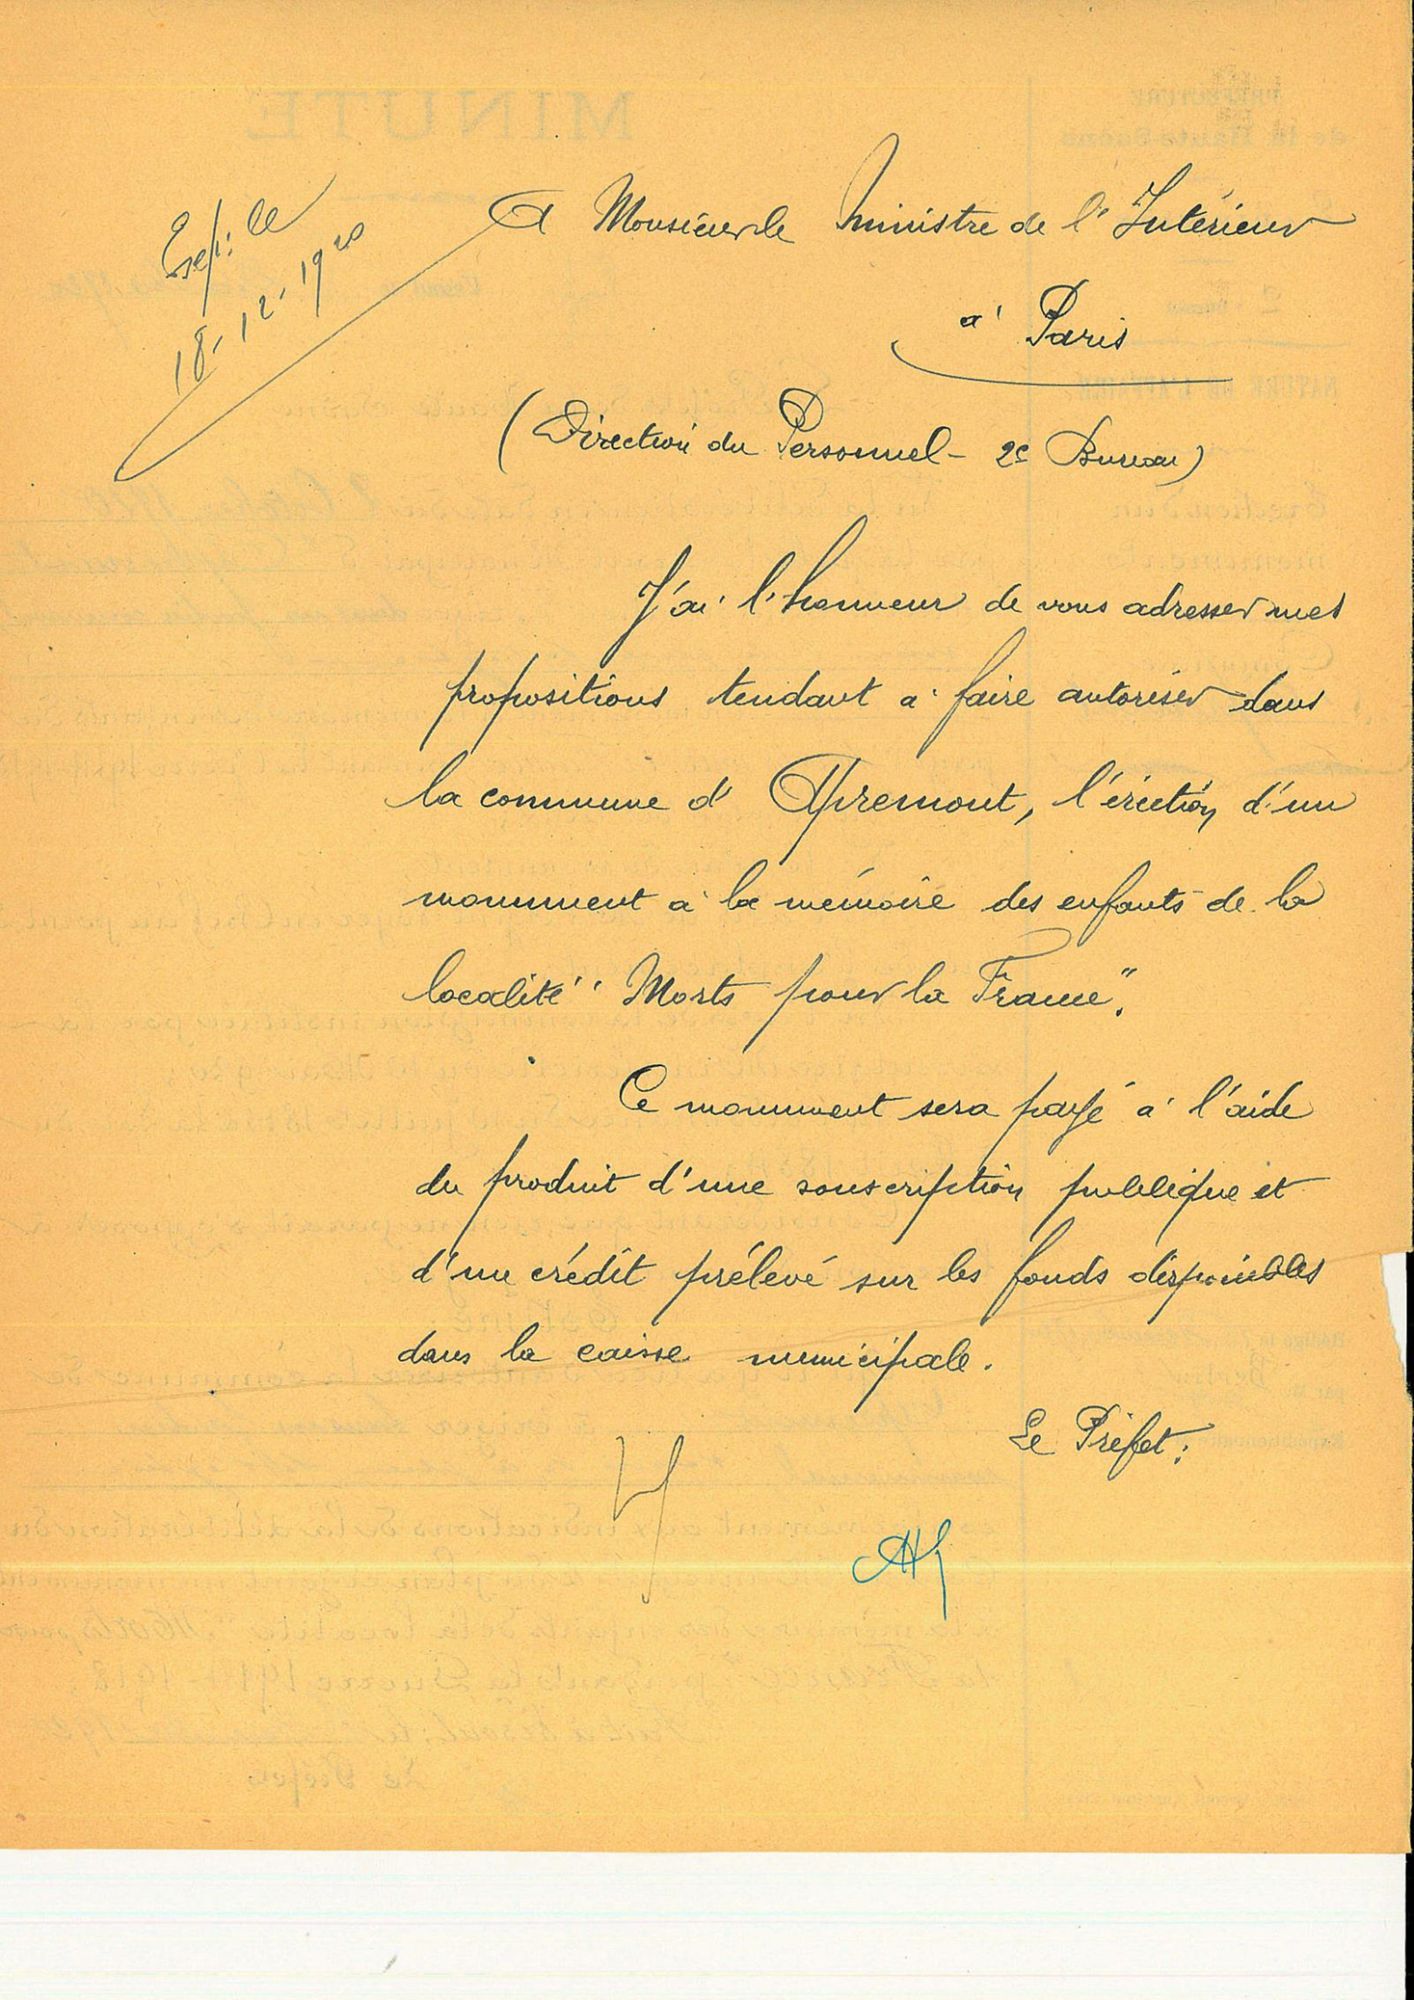 Exp: le
18-12-1920
A Monsieur le Ministre de l'Intérieur
à Paris
(Direction du Personnel - 2e Bureau)
J'ai l'honneur de vous adresser mes
propositions tendant à faire autoriser dans
la commune d'Apremont, l'érection d'un
monument à la mémoire des enfants de la
localité "Morts pour la France".
Ce monument sera payé à l'aide
du produit d'une souscription publique et
d'un crédit prélevé sur les fonds disponibles
dans la caisse municipale.
Le Préfet: